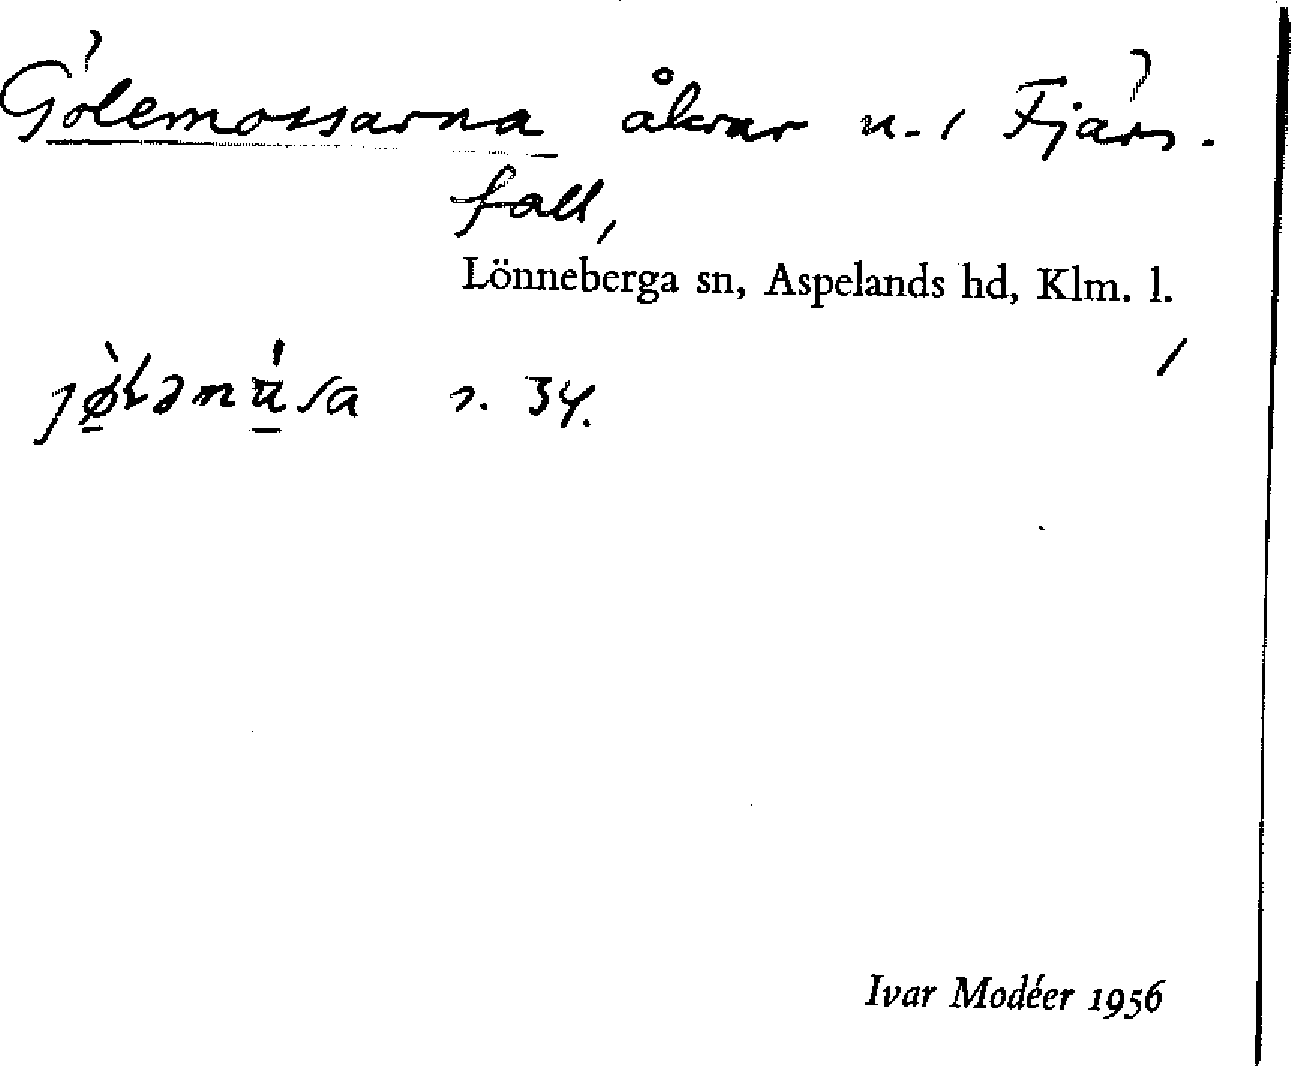 Gölemossarna åkrar u. / Fjärs-
fall,
Lönneberga sn, Aspelands hd, Klm. l.
s. 34.
Ivar Modéer 1956